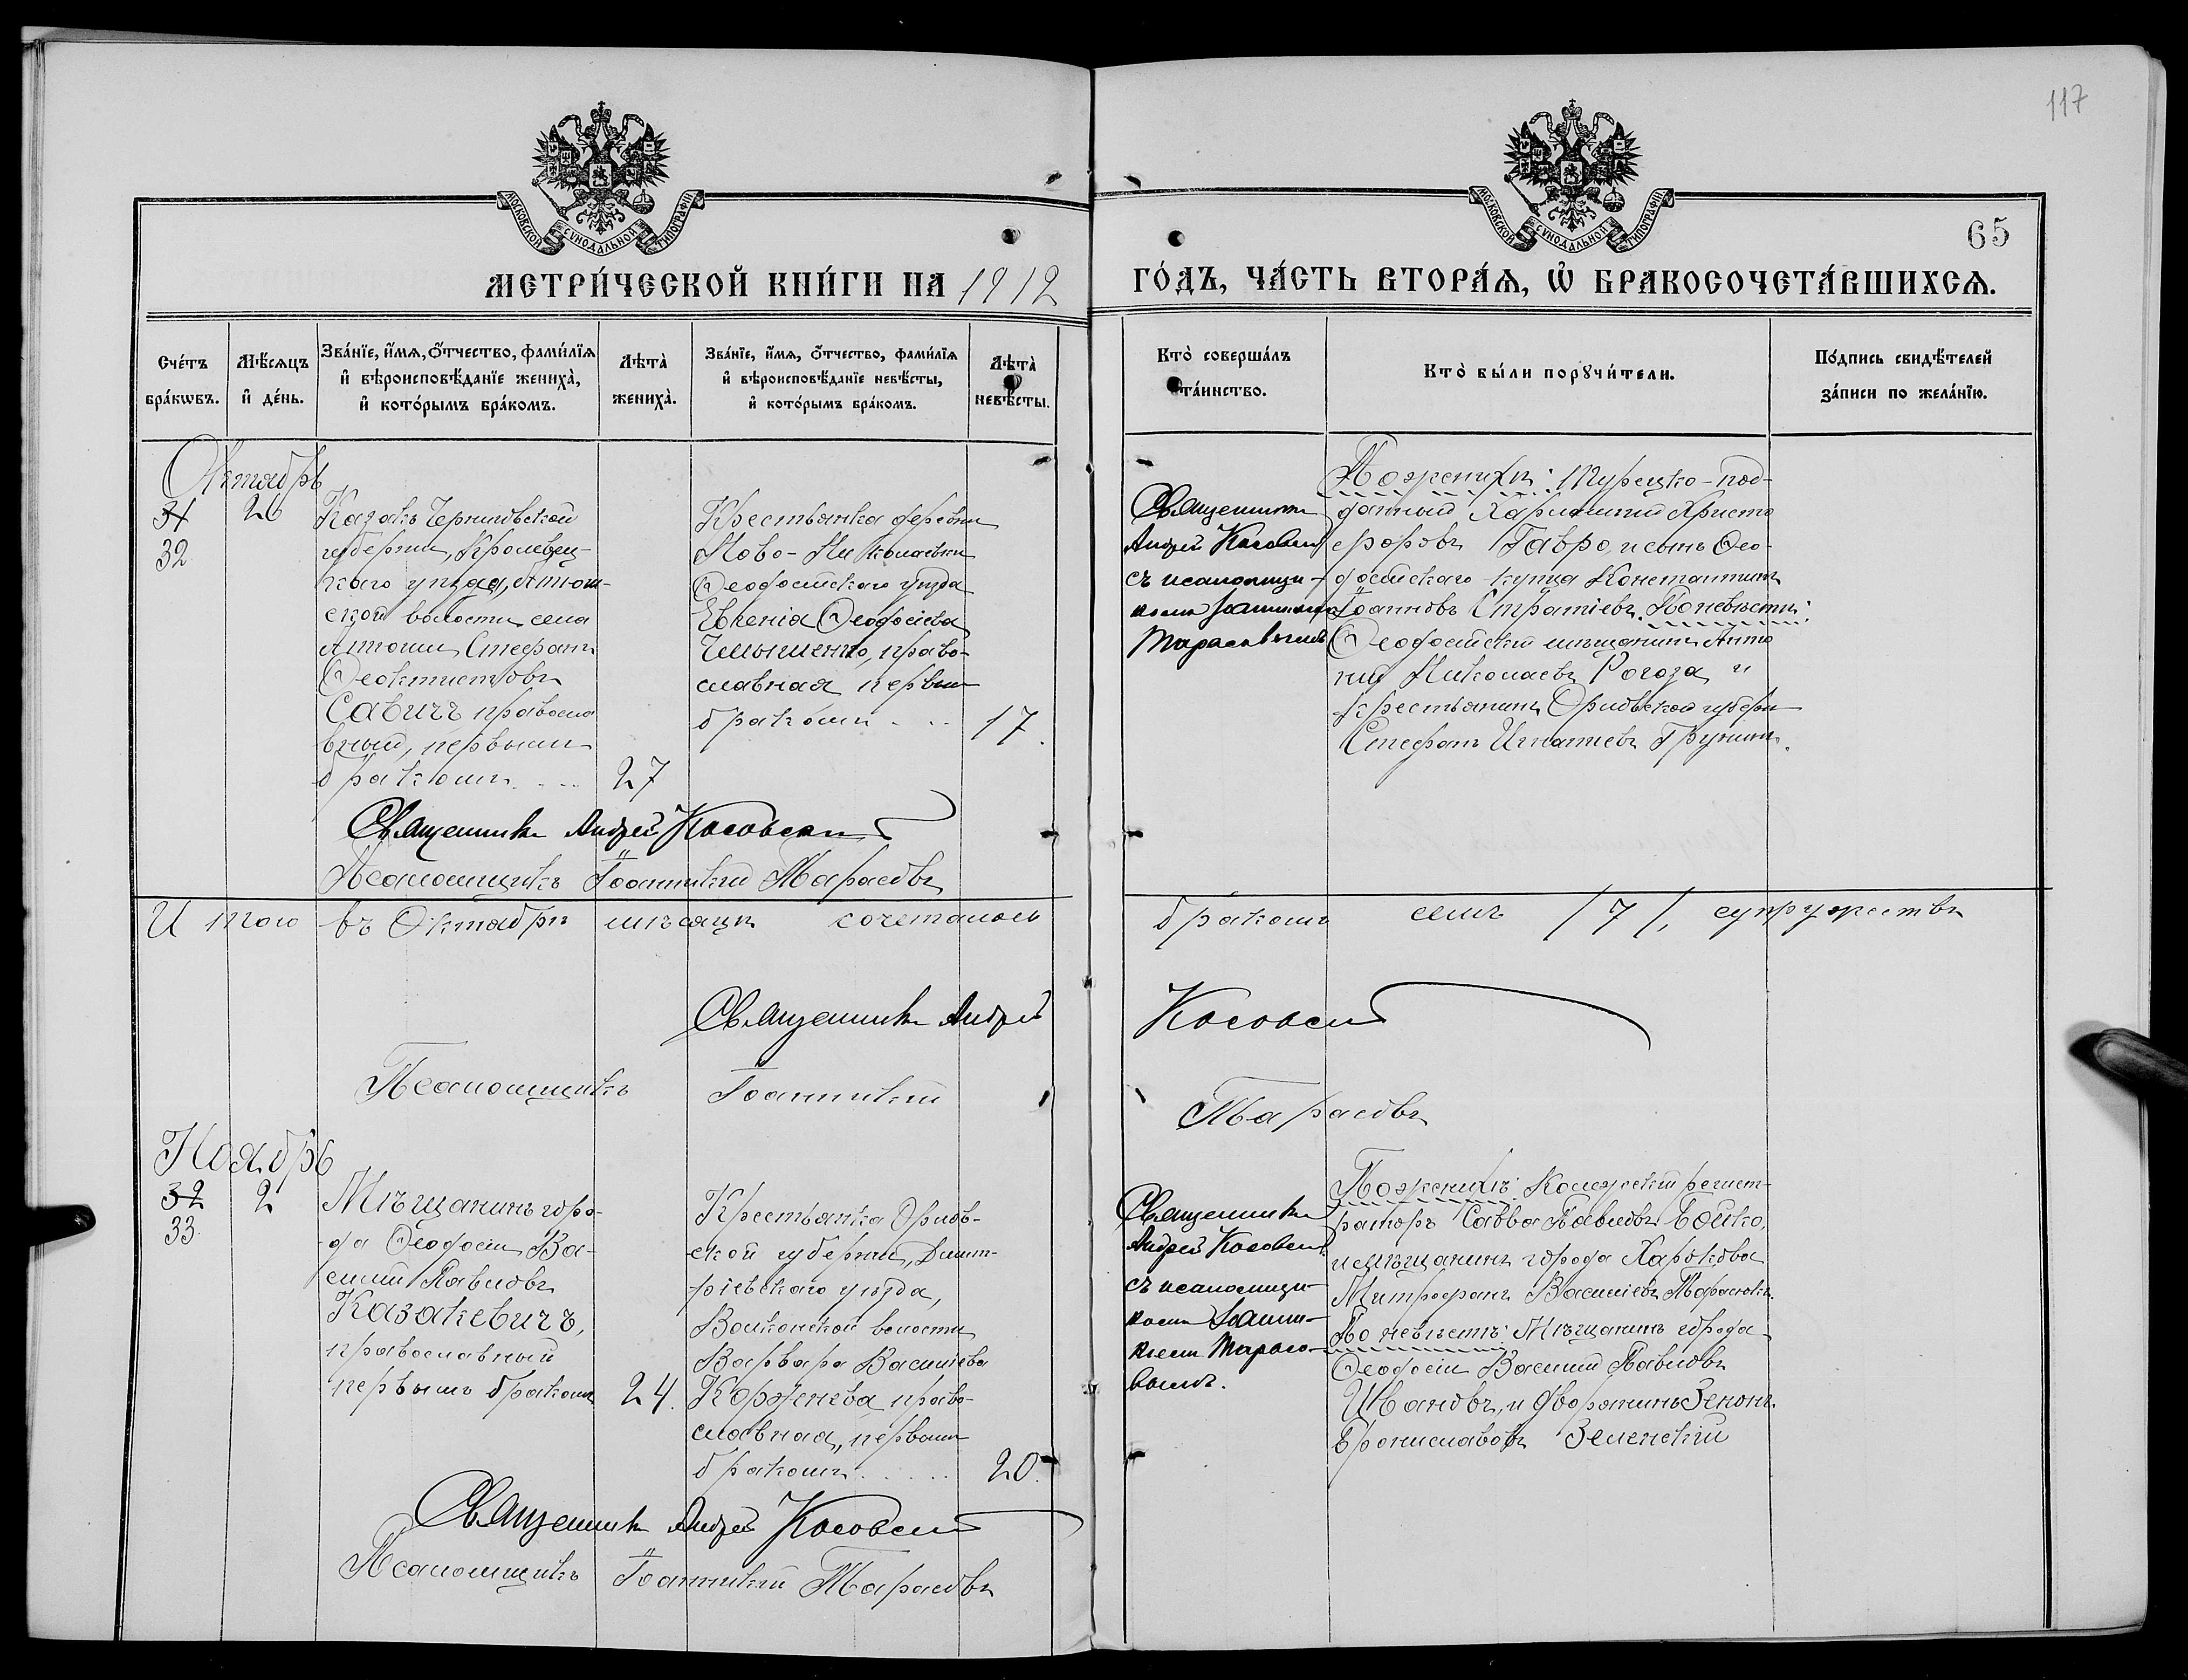 117
МОСКОВСКОЙ СѴНОДАЛЬНОЙ ТИПОГРАФІИ
МОСКОВСКОЙ СѴНОДАЛЬНОЙ ТИПОГРАФІИ
65
МЕТРИ́ЧЕСКОЙ КНИ́ГИ НА 1912
ГО́ДЪ, ЧА́СТЬ ВТОРА́Ѧ, Ѡ҆ БРАКОСОЧЕТА́ВШИХСѦ.
Сче́тъ
бра́кѡвъ.
Мѣ́сѧцъ
и҆ де́нь.
Зва́нїе, и҆́мѧ, ѻ҆́тчество, фамилїѧ
и҆ вѣроисповѣ́данїе жениха̀,
и҆ кото́рымъ бра́комъ.
Лѣта̀
жениха̀.
Зва́нїе, и҆́мѧ, ѻ҆́тчество, фамилїѧ
и҆ вѣроисповѣ́данїе невѣ́сты,
и҆ кото́рымъ бра́комъ.
Лѣта̀
невѣ́сты.
Кто̀ соверша́лъ
та́инство.
Кто̀ бы́ли порꙋчи́тели.
По́дпись свидѣ́телей
за́писи по жела́нїю.
Октябрь
31
32
26
Казакъ Черниговской
губерніи, Кролевец-
каго уѣзда, Атюш-
ской волости села
Атюши Стефанъ
Ѳеоктистовъ
Савичъ правосла
вный, первымъ
бракомъ .... 27
Крестьянка деревни
Ново-Николаевки
Ѳеодосійскаго уѣзда
Евгенія Ѳеодосіева
православная первым
бракомъ ... 17.
Священникъ
Андрей Косовскій
съ псаломщи-
комъ Іоанникіемъ
Тарасовымъ
По женихѣ: Турецко-под-
данный Харлампій Христо
форовъ Гавро, и сынъ Ѳео-
досійскаго купца Константинъ
Іоанновъ Стратіевъ. По невѣстѣ:
Ѳеодосійскій мѣщанинъ Анто
ній Николаевъ Рогоза, и
крестьянинъ Орловской губерн
Стефанъ Игнатіевъ Грунинъ.
Священникъ Андрей Косовскій
Псаломщикъ Іоанникій Тарасовъ
И того въ Октябрѣ мѣсяцѣ сочеталось
бракомъ семь /7/, супружествъ
Священникъ Андрей Косовскій
Псаломщикъ Іоанникій Тарасовъ
Ноябрь
32
33
2
Мѣщанинъ горо-
да Ѳеодосіи Ва-
силій Павловъ
Казакевичъ,
православный
первымъ бракомъ 24.
Крестьянка Орлов-
ской губерніи, Дмит-
ріевскаго уѣзда,
Волконской волости
Варвара Василіева
Корженева, право-
славная, первымъ
бракомъ ..... 20.
Священникъ
Андрей Косовскій
съ псаломщи-
комъ Іоанни-
кіемъ Тарасо-
вымъ.
По женихѣ: Коллежскій регист-
раторъ Савва Павловъ Бойко,
и мѣщанинъ города Харькова
Митрофанъ Василіевъ Тарасовъ.
По невѣстѣ: Мѣщанинъ города
Ѳеодосіи Василій Павловъ
Ивановъ, и дворянинъ Зенонъ
Брониславовъ Зеленскій
Священникъ Андрей Косовскій
Псаломщикъ Іоанникій Тарасовъ